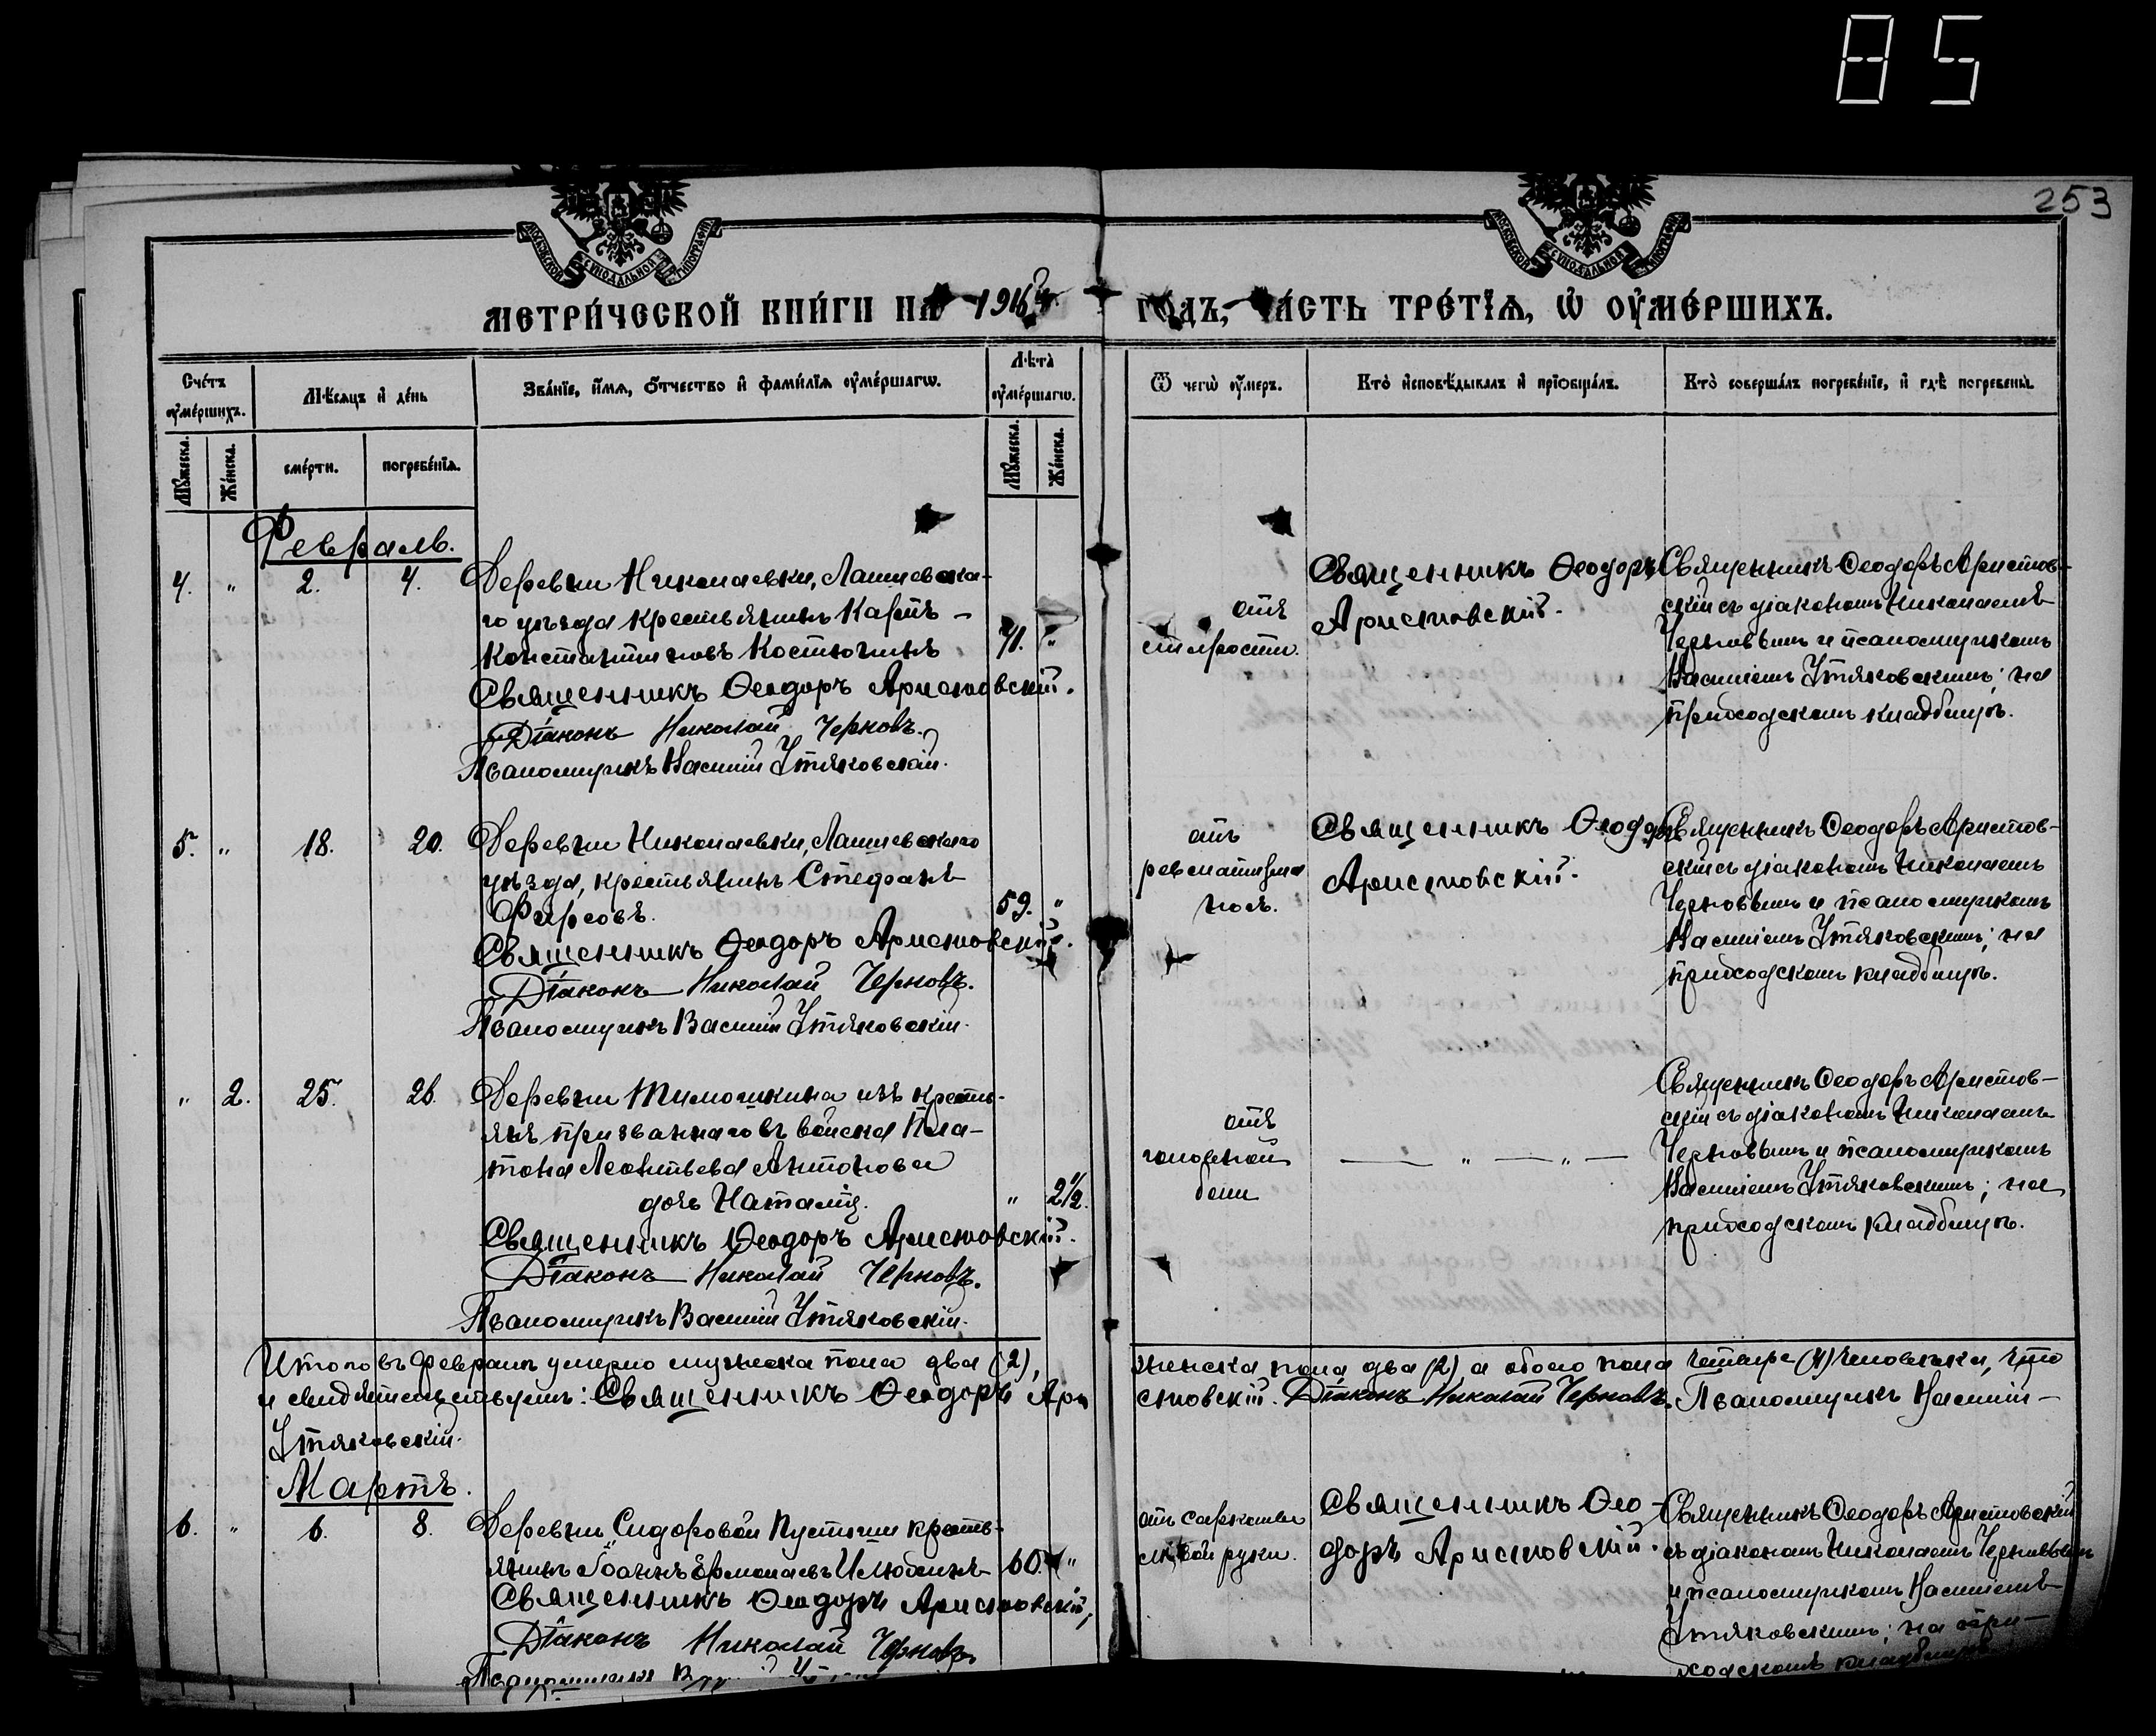 85
253
МОСКОВСКОЙ СѴНОДАЛЬНОЙ ТИПОГРАФІИ
МОСКОВСКОЙ СѴНОДАЛЬНОЙ ТИПОГРАФІИ
МЕТРИ́ЧЕСКОЙ КНИ́ГИ НА 1916й ГОДЪ, ЧА́СТЬ ТРЕ́ТЇѦ, Ѡ҆ ОУ҆МЕ́РШИХЪ.
Счéтъ оу҆мéршихъ.
Мѣ́сѧцъ и҆ дéнь
Звáнїе, и҆́мѧ, ѻ҆́тчество и҆ фамíлїѧ оу҆мéршагѡ.
Лѣ́та оу҆мéршагѡ.
Ѿ чегѡ̀ оу҆́меръ.
Ктò и҆сповѣ́дывалъ и҆ прїѡбщáлъ.
Ктò совершáлъ погребéнїе, и҆ гдѣ̀ погребены̀.
Мꙋ́жеска.
Жéнска.
смéрти.
погребéнїѧ.
Мꙋ́жеска.
Жéнска.
Февраль.
4. " 2. 4.
Деревни Николаевки, Лаишевска-
го уѣзда крестьянинъ Карпъ -
Константиновъ Костючинъ 71. "
Священникъ Ѳеодоръ Аристовскій.
Діаконъ Николай Черновъ.
Псаломщикъ Василій Утяковскій.
отъ
старости.
Священникъ Ѳеодоръ
Аристовскій.
Священникъ Ѳеодоръ Аристов-
скій съ діакономъ Николаемъ
Черновымъ и псаломщикомъ
Василіемъ Утяковскимъ; на
приходскомъ кладбищѣ.
5. " 18. 20.
Деревни Николаевки, Лаишевскаго
уѣзда, крестьянинъ Стефанъ
Фирсовъ. 59. "
Священникъ Ѳеодоръ Аристовскій.
Діаконъ Николай Черновъ.
Псаломщикъ Василій Утяковскій.
отъ
ревматизма
ногъ.
Священникъ Ѳеодоръ
Аристовскій.
Священникъ Ѳеодоръ Аристов-
скій съ діакономъ Николаемъ
Черновымъ и псаломщикомъ
Василіемъ Утяковскимъ; на
приходскомъ кладбищѣ.
" 2. 25. 26.
Деревни Тимошкина изъ кресть-
янъ призваннаго въ войска Пла-
тона Леонтьева Антонова
дочь Наталія. " 2 1/2.
Священникъ Ѳеодоръ Аристовскій.
Діаконъ Николай Черновъ.
Псаломщикъ Василій Утяковскій.
отъ
головной
боли
— " — " —
Священникъ Ѳеодоръ Аристов-
скій съ діакономъ Николаемъ
Черновымъ и псаломщикомъ
Василіемъ Утяковскимъ; на
приходскомъ кладбищѣ.
Итого въ февралѣ умерло мужеска пола два (2), женска пола два (2) а обоего пола четыре (4) человѣка, что
и свидѣтельствуемъ: Священникъ Ѳеодоръ Аристовскій. Діаконъ Николай Черновъ. Псаломщикъ Василій -
Утяковскій.
Мартъ.
6. " 6. 8.
Деревни Сидоровой Пустыни кресть-
янинъ Іоаннъ Ермолаевъ 60. "
Священникъ Ѳеодоръ Аристовскій,
Діаконъ Николай Черновъ
Псаломщикъ
отъ саркомы
лѣвой руки.
Священникъ Ѳео-
доръ Аристовскій.
Священникъ Ѳеодоръ Аристовскій
съ діакономъ Николаемъ Черновымъ
и псаломщикомъ Василіемъ
Утяковскимъ; на при-
ходскомъ кладбищѣ